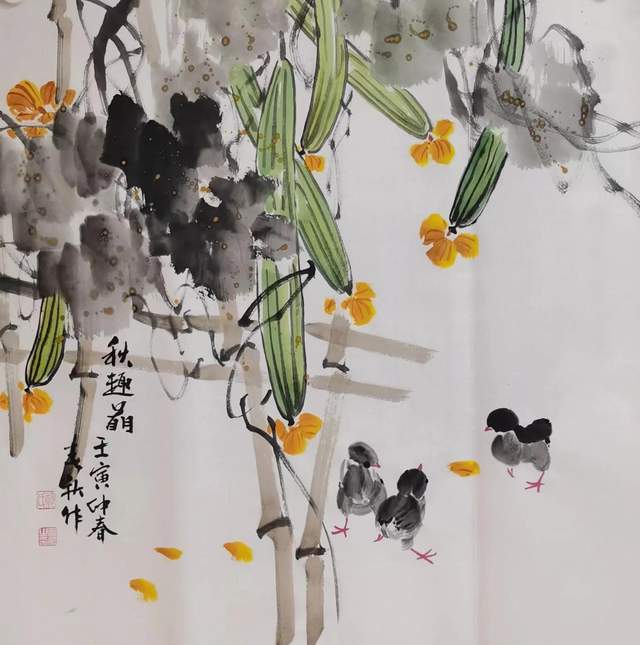 秋趣
壬寅仲春
秋作